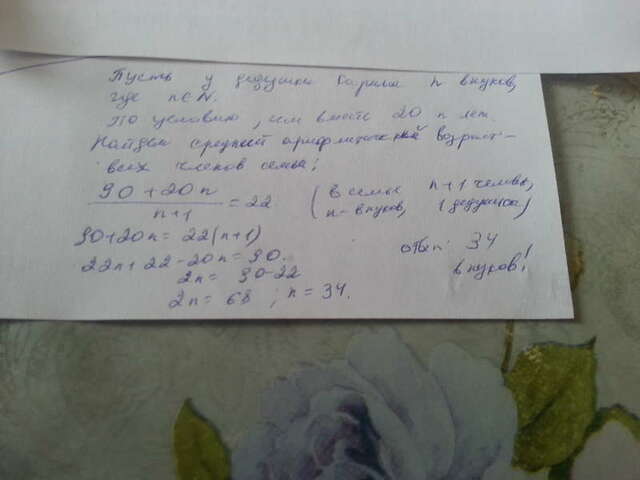 Пусть у дедушки Карима n внуков,
где n∈N.
По условию, им вместе 20 n лет.
Найдем средний арифметический возраст
всех членов семьи:
90+20n / n+1 = 22 (в семье n+1 человек,
n - внуков, 1 дедушка)
90+20n = 22(n+1)
22n+22-20n=90.
2n= 90-22
2n= 68 ; n=34.
ответ: 34
внуков!